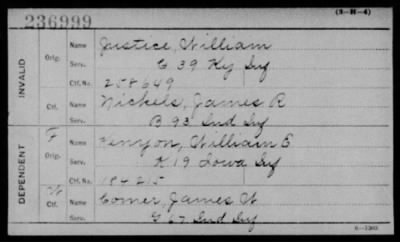 (3-H-4)
236999
INVALID
Orig.
Name Justice, William
Serv. C 39 Ky Inf
Ctf. No. 258649
Ctf.
Name Nickels, James R
Serv. B 93 Ind Inf
DEPENDENT
Orig.
Name Kenyon, William B
Serv. K 19 Iowa Inf
Ctf. No. 184215
Ctf.
Name Comer, James W
Serv. G 67 Ind Inf